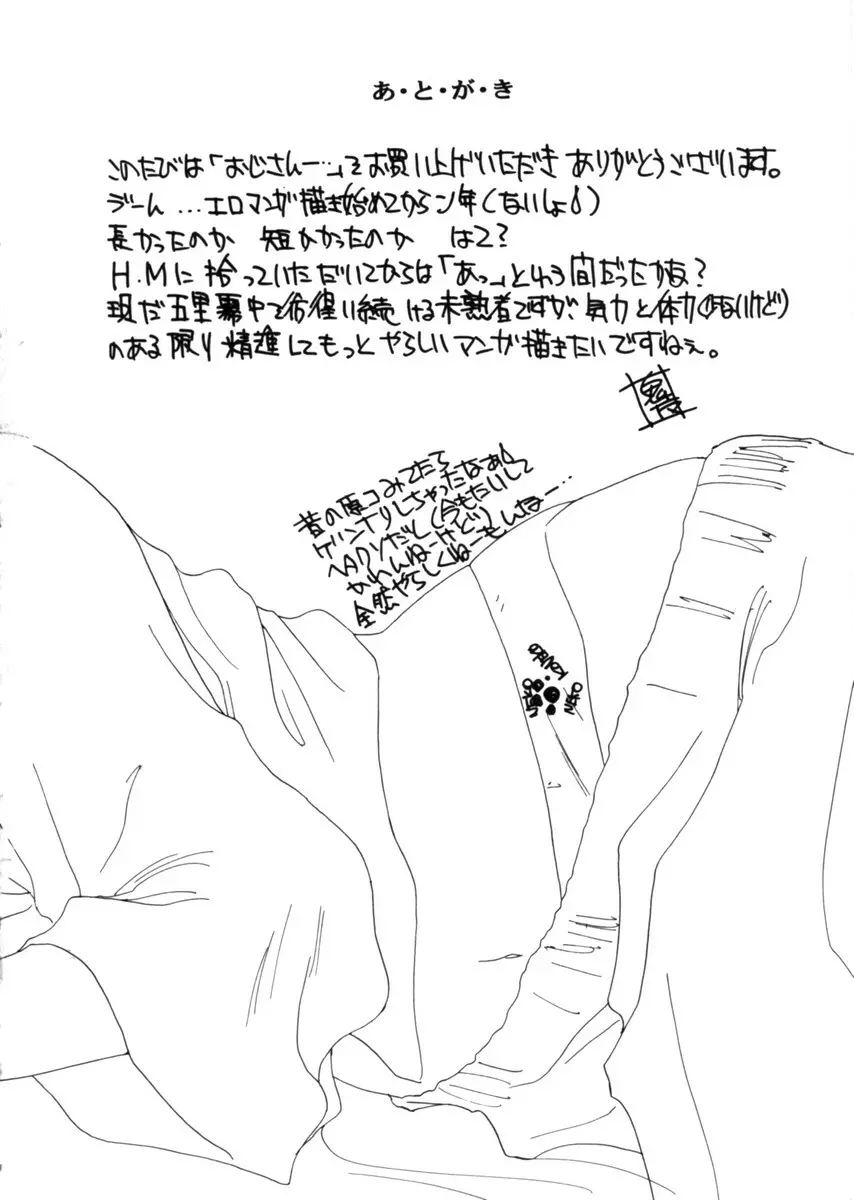 あ・と・が・き
このたびは「おじさんー…」をお買い上げいただき ありがとうございます。
うーん …エロマンガ描き始めてからン年(ないしょ)
長かったのか 短かかったのか はて?
H.Mに拾っていただいてからは「あっ」という間だったかな?
現だ五里霧中で彷徨い続ける未熟者ですが、気力と体力(もないけど)
のある限り精進してもっとやらしいマンガ描きたいですねぇ。
昔の原コみてたら
ゲンナリしちゃったなぁ
ヘタクソだと(今もたいして
かわんねーけど)
全然やらしくねーもんなー…
NEKO